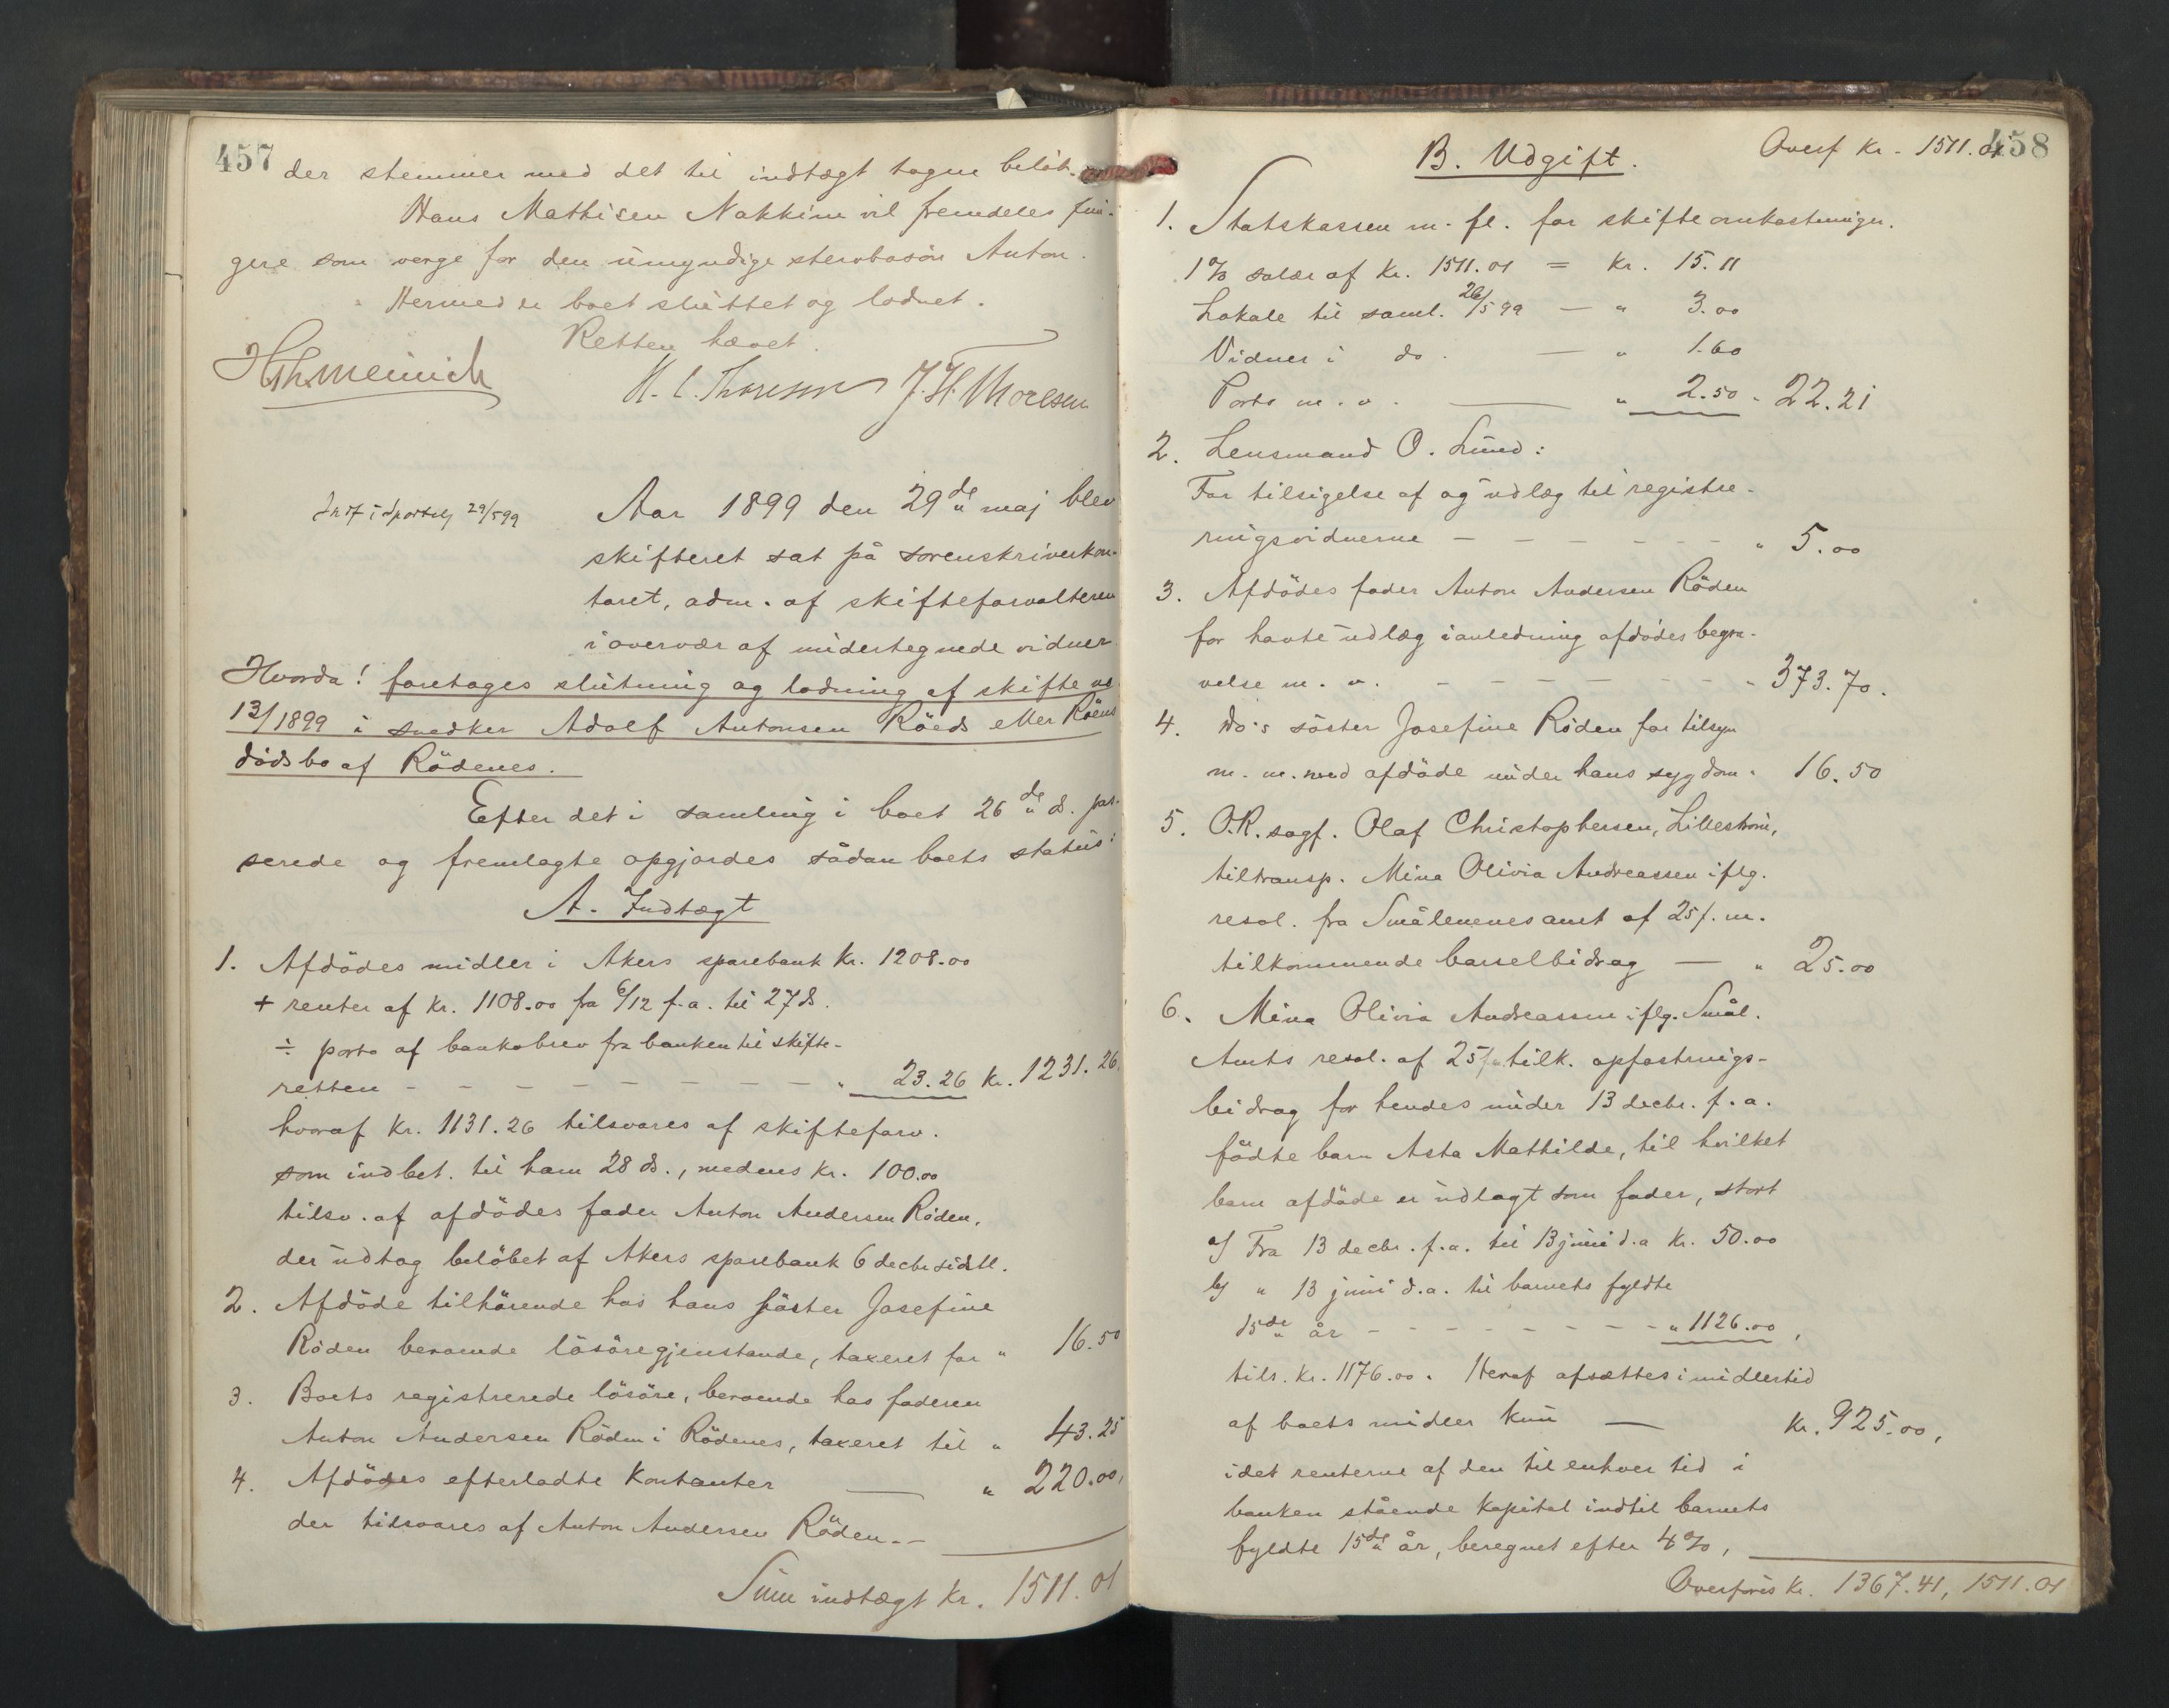 457
der stemmer med det til indtægt tagne beløb.
Hans Mathisen Nakkim vil fremdeles fun-
gere som verge for den umyndige stervbosøn Anton.
Hermed er boet sluttet og lodnet.
Retten hævet.
H. C. Thoresen J. H. Thoresen
Indf i sportelj 29/5 99
Aar 1899 den 29de maj blev
skifteret sat på sorenskriverkon-
toret, adm. af skifteforvalteren
i overvær af undertegnede vidner
Hvorda! foretages slutning og lodning af skifte no
13/1899 i snedker Adolf Antonsen Röeds eller Röens
dødsbo af Rödenes.
Efter det i samling i boet 26de ds. pas-
serede og fremlagte opgjordes sådan boets status:
A. Indtægt
1. Afdödes midler i Akers sparebank kr. 1208.00
+ renter af kr. 1108.00 fra 6/12 f.a. til 27 ds.
÷ porto af bankobrev fra banken til skifte-
retten - - - - - - - - " 23.26 kr. 1231.26,
hvoraf kr. 1131.26 tilsvares af skifteforv.
som indbet. til ham 28 ds., medens kr. 100.00
tilsv. af afdödes fader Anton Andersen Röden,
der udtog belöbet af Akers sparebank 6 decbr sidstl.
2. Afdöde tilhörende hos hans söster Josefine
Röden beroende lösöregjenstande, taxeret for " 16.50
3. Boets registrerede lösöre, beroende hos faderen
Anton Andersen Röden i Rödenes, taxeret til " 43.25
4. Afdödes efterladte kontanter — " 220.00,
der tilsvares af Anton Andersen Röden. —
Sum indtægt kr. 1511.01
458
B. Udgift. Overf kr. 1511.01
1. Statskassen m. fl. for skifteomkostninger.
1% salær af kr. 1511.01 = kr. 15.11
Lokale til saml. 26/5 99 — " 3.00
Vidner i do. — " 1.60
Porto m. v. — " 2.50 " 22.21
2. Lensmand O. Lund:
For tilsigelse af og udlæg til registre-
ringsvidnerne - - - - - - " 5.00
3. Afdödes fader Anton Andersen Röden
for havte udlæg i anledning afdödes begra-
velse m. v. - - - - - - " 373.70.
4. Do's söster Josefine Röden for tilsyn
m. m. med afdöde under hans sygdom " 16.50
5. O.R. sagf. Olaf Christophersen, Lilleström,
tiltransp. Mina Olivia Andreassen iflg.
resol. fra Smålenenes amt af 25 f. m.
tilkommende barselbidrag — " 25.00
6. Mina Olivia Andreassen iflg. Smål.
Amts resol. af 25/ tilk. opfostrings-
bidrag for hendes under 13 decbr. f. a.
födte barn Asta Mathilde, til hvilket
barn afdöde er udlagt som fader, stort
a/ Fra 13 decbr. f.a. til 13 juni d.a kr. 50.00
b/ " 13 juni d.a. til barnets fyldte
15de år - - - - - - - - " 1126.00,
tils. kr. 1176.00. Heraf afsættes imidlertid
af boets midler kun — kr. 925.00,
idet renterne af den til enhver tid i
banken stående kapital indtil barnets
fyldte 15de år, beregnet efter 4%,
Overføres kr. 1367.41, 1511.01